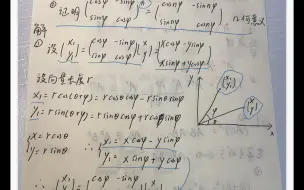 ② 证明 (cosφ -sinφ / sinφ cosφ)ⁿ = (cosφ -sinφ / sinφ cosφ) 几何意义
解
① 设 (x₁ / y₁) = (cosφ -sinφ / sinφ cosφ)(x / y) = (xcosφ - ysinφ / xsinφ + ycosφ)
设向量长度 r
x₁ = r cos(θ+φ) = r cosθ cosφ - r sinθ sinφ
y₁ = r sin(θ+φ) = r sinθ cosφ + r cosθ sinφ
{ x = r cosθ
y = r sinθ
∴ { x₁ = x cosφ - y sinφ
y₁ = x sinφ + y cosφ
(x₁ / y₁)
(x / y)
y
x
φ
cosφ -sinφ